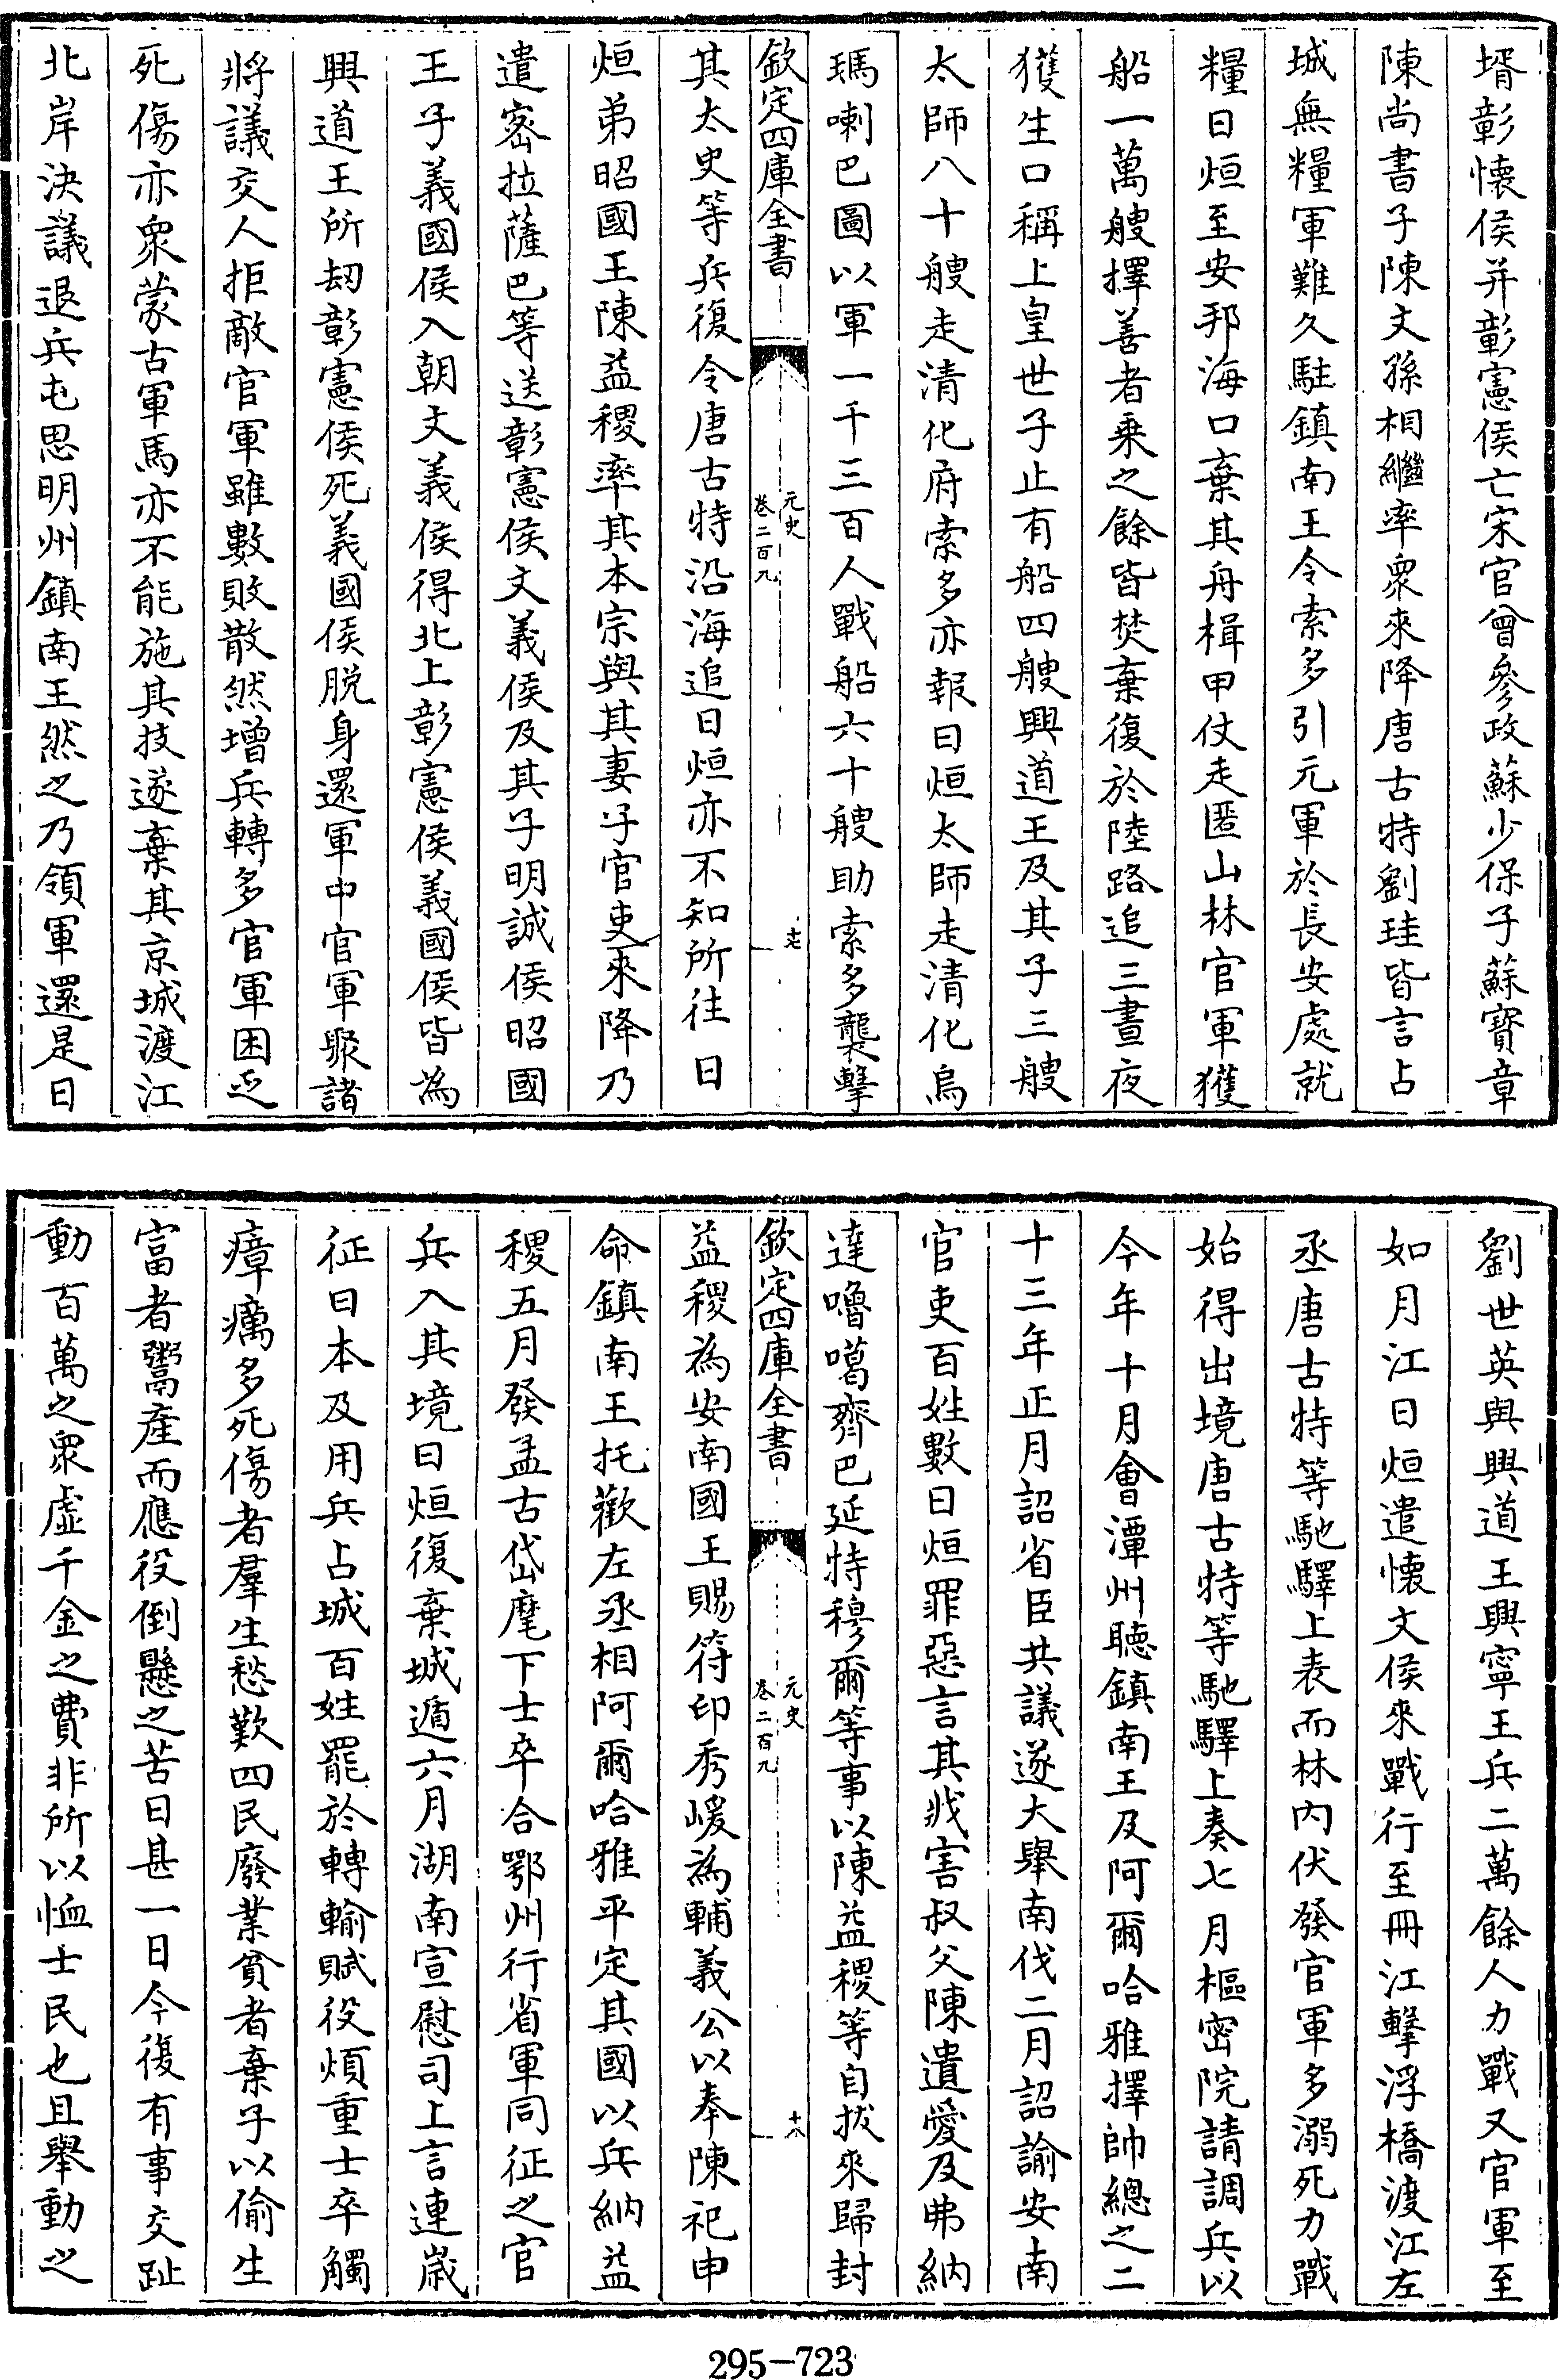 壻彰懷侯并彰憲侯亡宋官曾參政蘇少保子蘇寳章
陳尚書子陳文孫相繼率衆來降唐古特劉珪皆言占
城無糧軍難久駐鎮南王令索多引元軍於長安處就
糧日烜至安邦海口棄其舟楫甲仗走匿山林官軍獲
船一萬艘擇善者乗之餘皆焚棄復於陸路追三晝夜
獲生口稱上皇世子止有船四艘興道王及其子三艘
太師八十艘走清化府索多亦報日烜太師走清化烏
瑪喇巴圖以軍一千三百人戰船六十艘助索多襲擊
欽定四庫全書
元史
卷二百九
十七
其太史等兵復令唐古特沿海追日烜亦不知所往日
烜弟昭國王陳益稷率其本宗與其妻子官吏來降乃
遣宻拉薩巴等送彰憲侯文義侯及其子明誠侯昭國
王子義國侯入朝文義侯得北上彰憲侯義國侯皆為
興道王所刼彰憲侯死義國侯脱身還軍中官軍聚諸
將議交人拒敵官軍雖數敗散然增兵轉多官軍困乏
死傷亦衆蒙古軍馬亦不能施其技遂棄其京城渡江
北岸決議退兵屯思明州鎮南王然之乃領軍還是日
劉世英與興道王興寧王兵二萬餘人力戰又官軍至
如月江日烜遣懐文侯來戰行至冊江擊浮橋渡江左
丞唐古特等馳驛上表而林内伏發官軍多溺死力戰
始得出境唐古特等馳驛上奏七月樞密院請調兵以
今年十月會潭州聽鎮南王及阿爾哈雅擇帥總之二
十三年正月詔省臣共議遂大舉南伐二月詔諭安南
官吏百姓數日烜罪惡言其戕害叔父陳遺愛及弗納
達嚕噶齊巴延特穆爾等事以陳益稷等自拔來歸封
欽定四庫全書
元史
卷二百九
十八
益稷為安南國王賜符印秀嵈為輔義公以奉陳祀申
命鎮南王托歡左丞相阿爾哈雅平定其國以兵納益
稷五月發孟古岱麾下士卒合鄂州行省軍同征之官
兵入其境日烜復棄城遁六月湖南宣慰司上言連歳
征日本及用兵占城百姓罷於轉輸賦役煩重士卒觸
瘴癘多死傷者羣生愁歎四民廢業貧者棄子以偷生
富者鬻産而應役倒懸之苦日甚一日今復有事交趾
動百萬之衆虛千金之費非所以恤士民也且舉動之
295-723